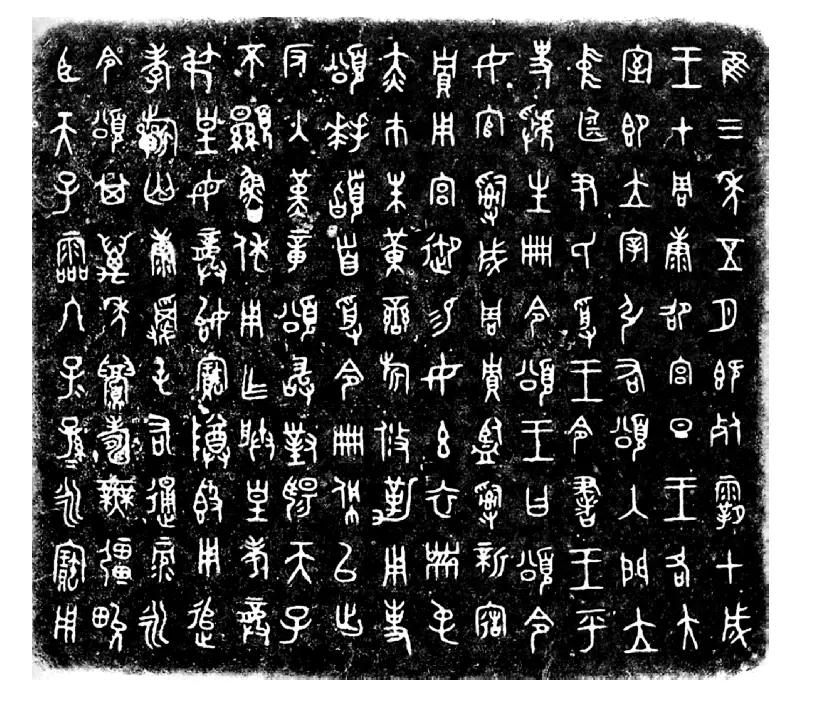 隹三年五月既死霸甲戌
王才周康卲宮旦王各大
室即立宰引右頌入門立
中廷尹氏受王令書王乎
史虢生冊令頌王曰頌令
女官𤔲成周貯監𤔲新造
貯用宮御易女玄衣黹屯
赤市朱黃鑾旂攸勒用事
頌拜稽首受令冊佩以出
反入堇章頌敢對揚天子
不顯魯休用乍朕皇考龏
弔皇母龏姒寶尊鼎用追
孝祈匄康𩁹屯右通彔永
令頌其萬年眉壽無疆畯
臣天子霝冬子孫永寶用